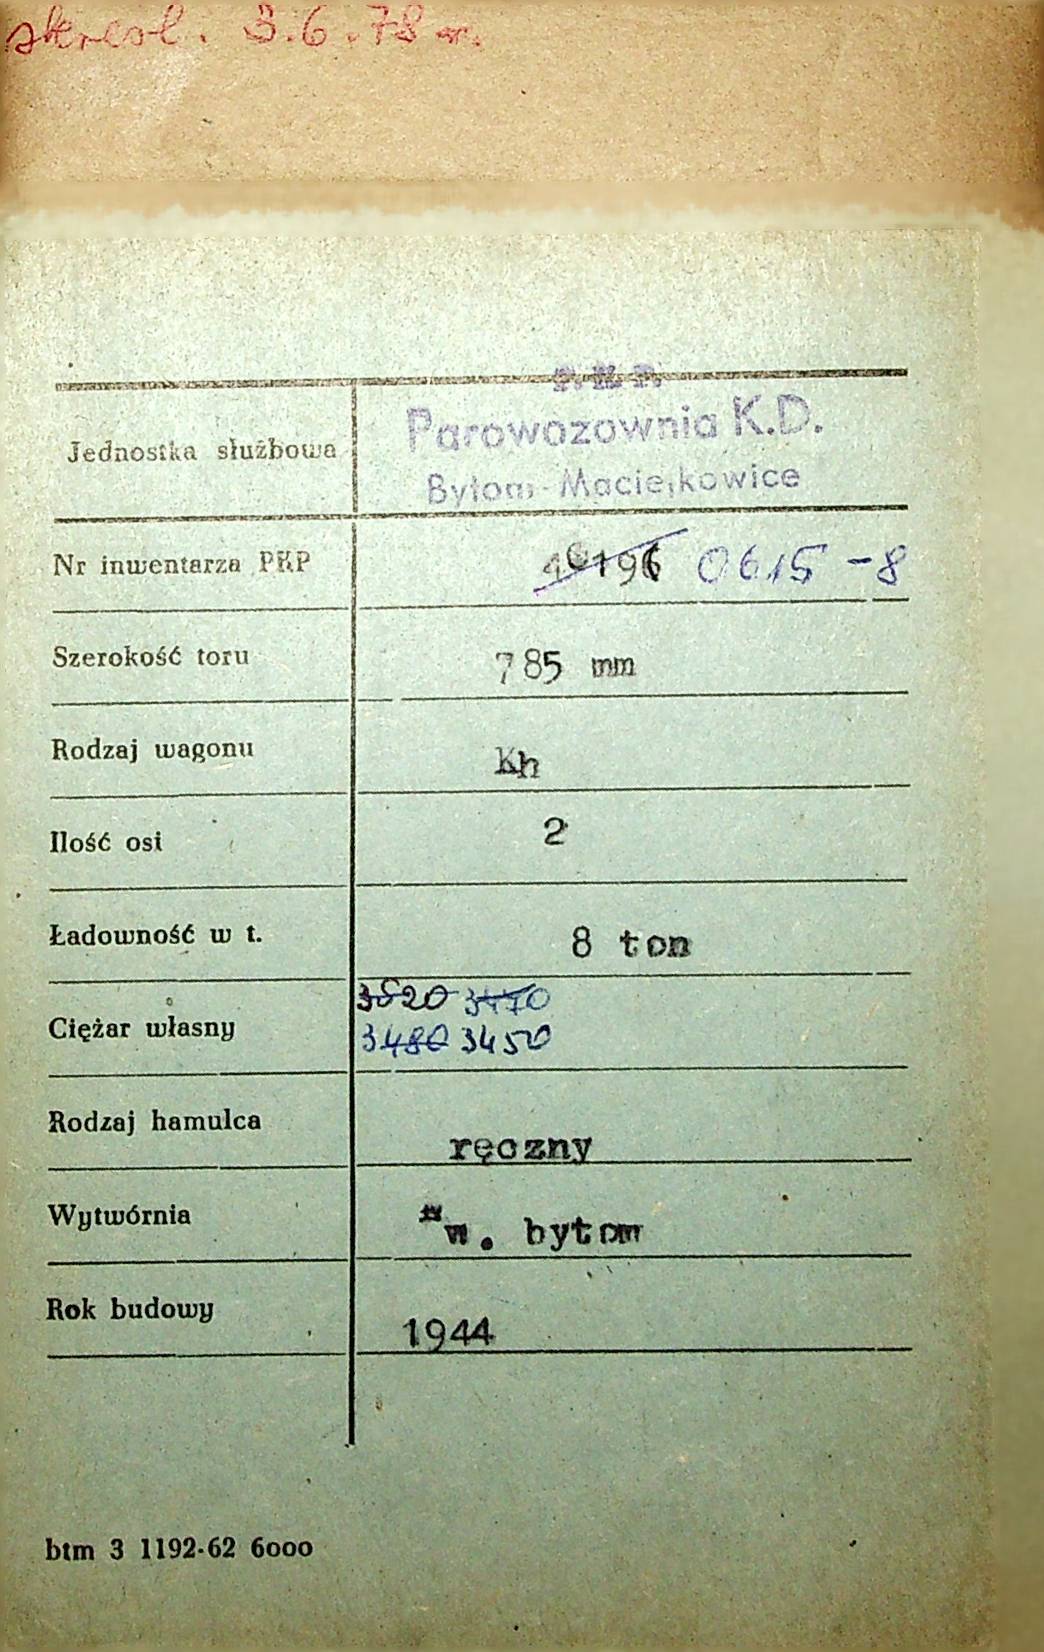 skreśl. 3.6.78 r.
P.K.P.
Jednostka służbowa Parowozownia K.D.
Bytom-Maciejkowice
Nr inwentarza PKP 40196 0615-8
Szerokość toru 785 mm
Rodzaj wagonu Kh
Ilość osi 2
Ładowność w t. 8 ton
3520 3470
Ciężar własny 3480 3450
Rodzaj hamulca ręczny
Wytwórnia w. bytom
Rok budowy 1944
btm 3 1192-62 6000